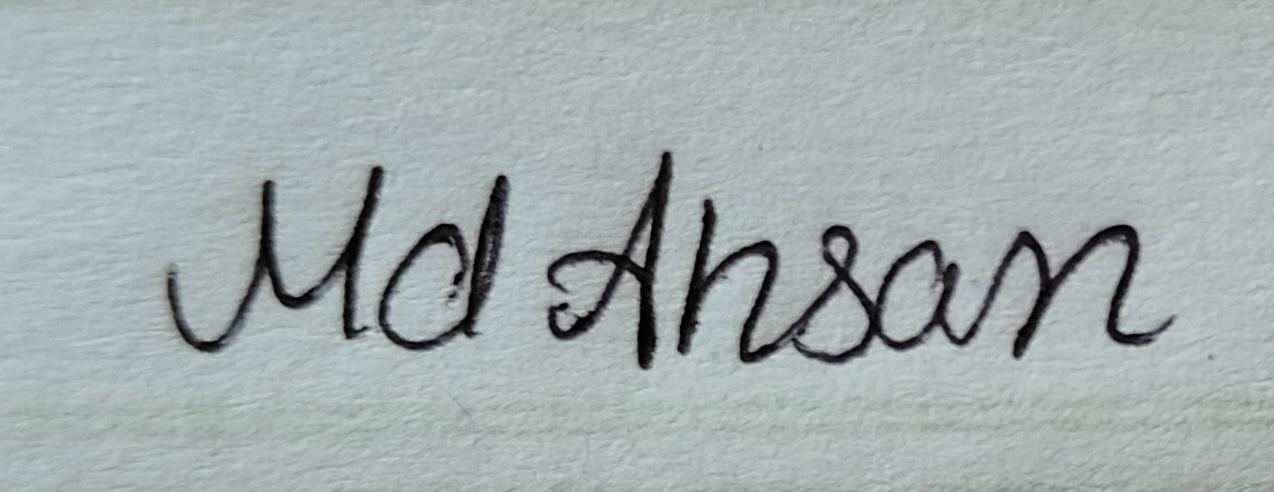 Md Ahsan